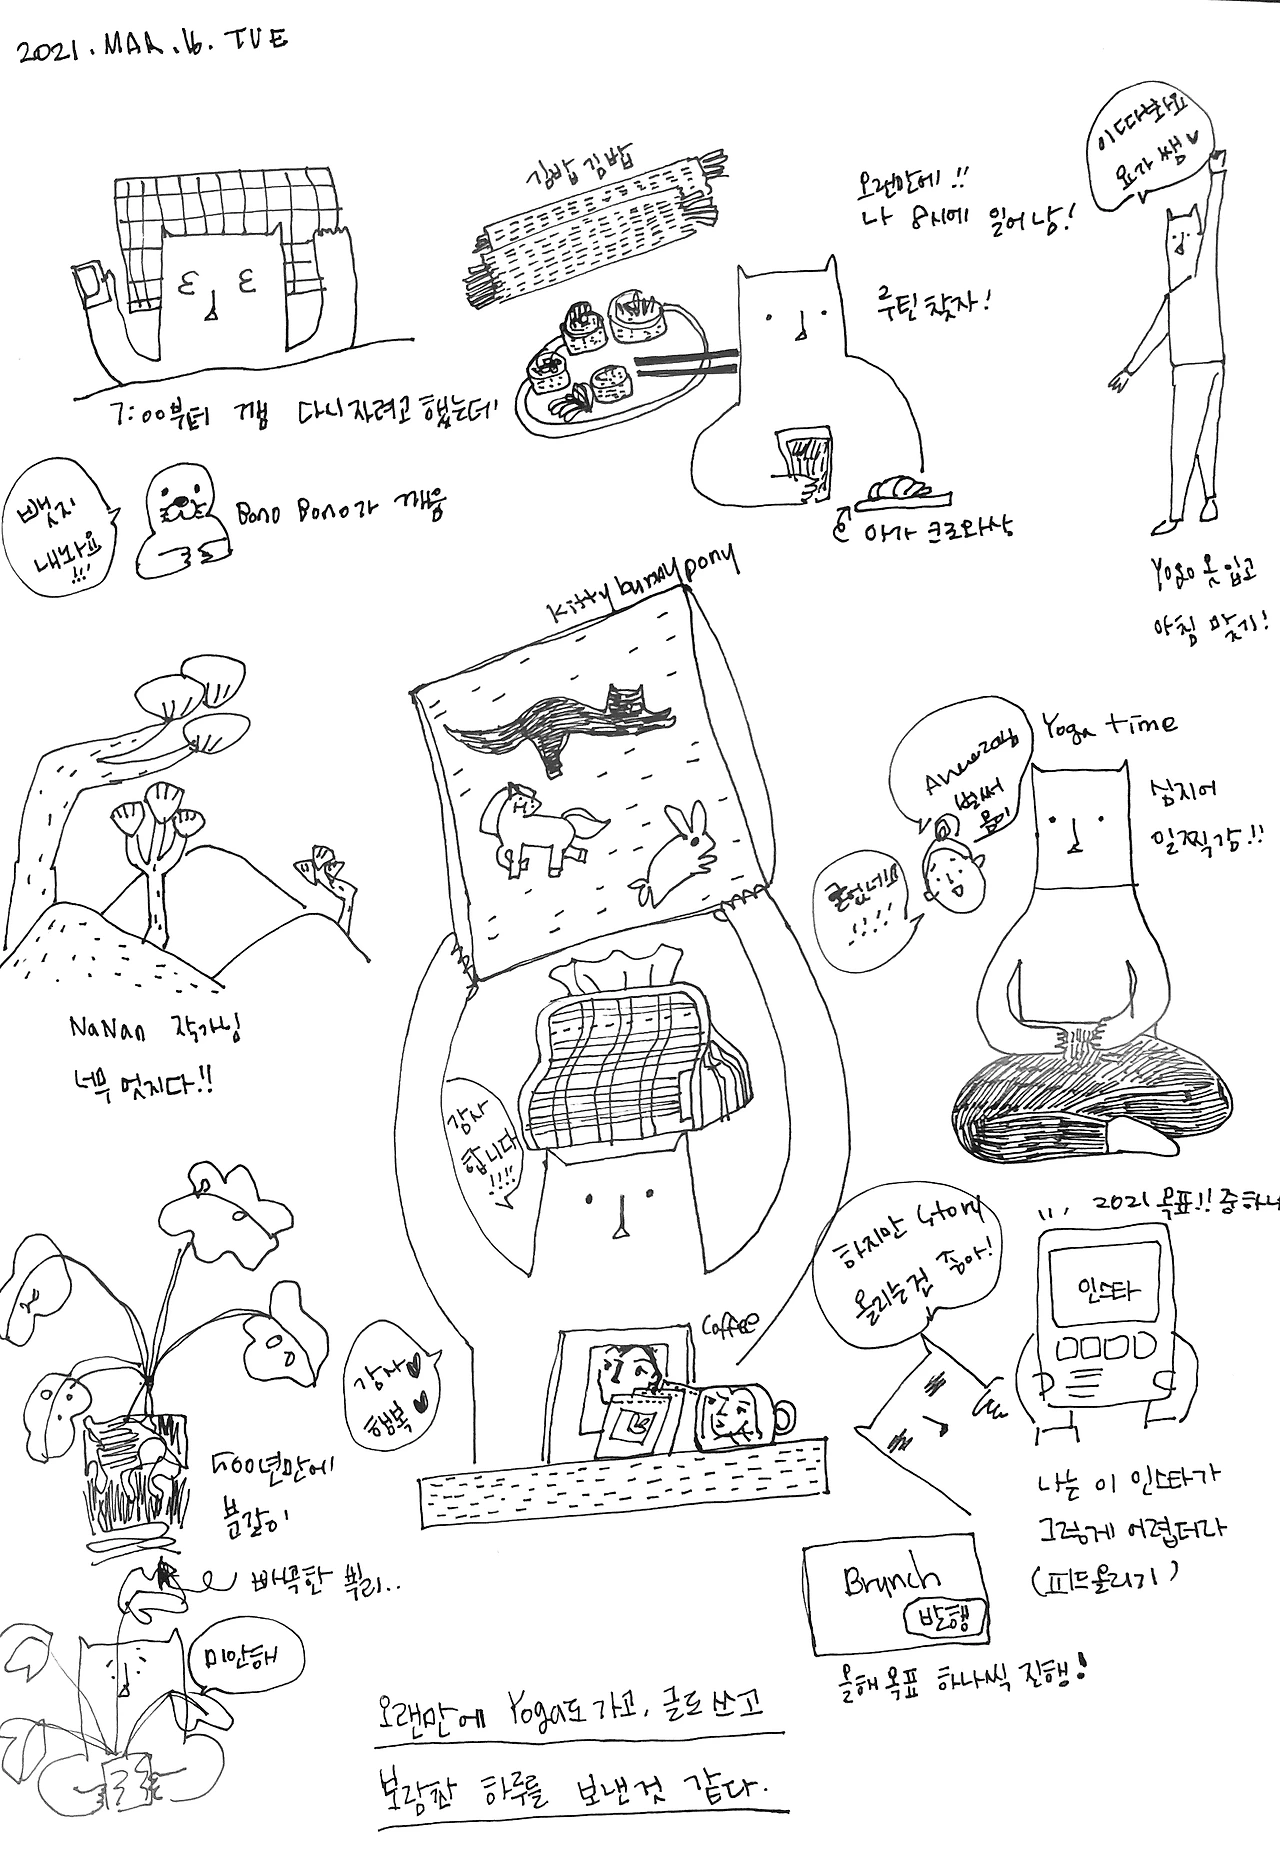 2021. MAR. 16. TUE
7:00부터 깸 다시자려고 했는데
뱃지
내놔요
!!!
Bono Bono가 깨움
김밥 김밥
오랜만에!!
나 8시에 일어낭!
루틴 찾자!
아가 크로와상
이따봐요
요가쌤♥
Yoga 옷 입고
아침 맞기!
NaNan 작가님
너무 멋지다!!
Kitty bunny pony
감사
합니다
!!!!
Yoga time
심지어
일찍감!!
벌써
몸이
굳었네요
!!!!
500년만에
분갈이
빼곡한 뿌리..
미안해
감사♥
행복♥
Coffee
하지만 Story
올리는건 좋아!
2021 목표!! 중 하나
인스타
나는 이 인스타가
그렇게 어렵더라
(피드올리기)
Brunch
발행
올해목표 하나씩 진행!
오랜만에 Yoga도 가고, 글도 쓰고
보람찬 하루를 보낸것 같다.